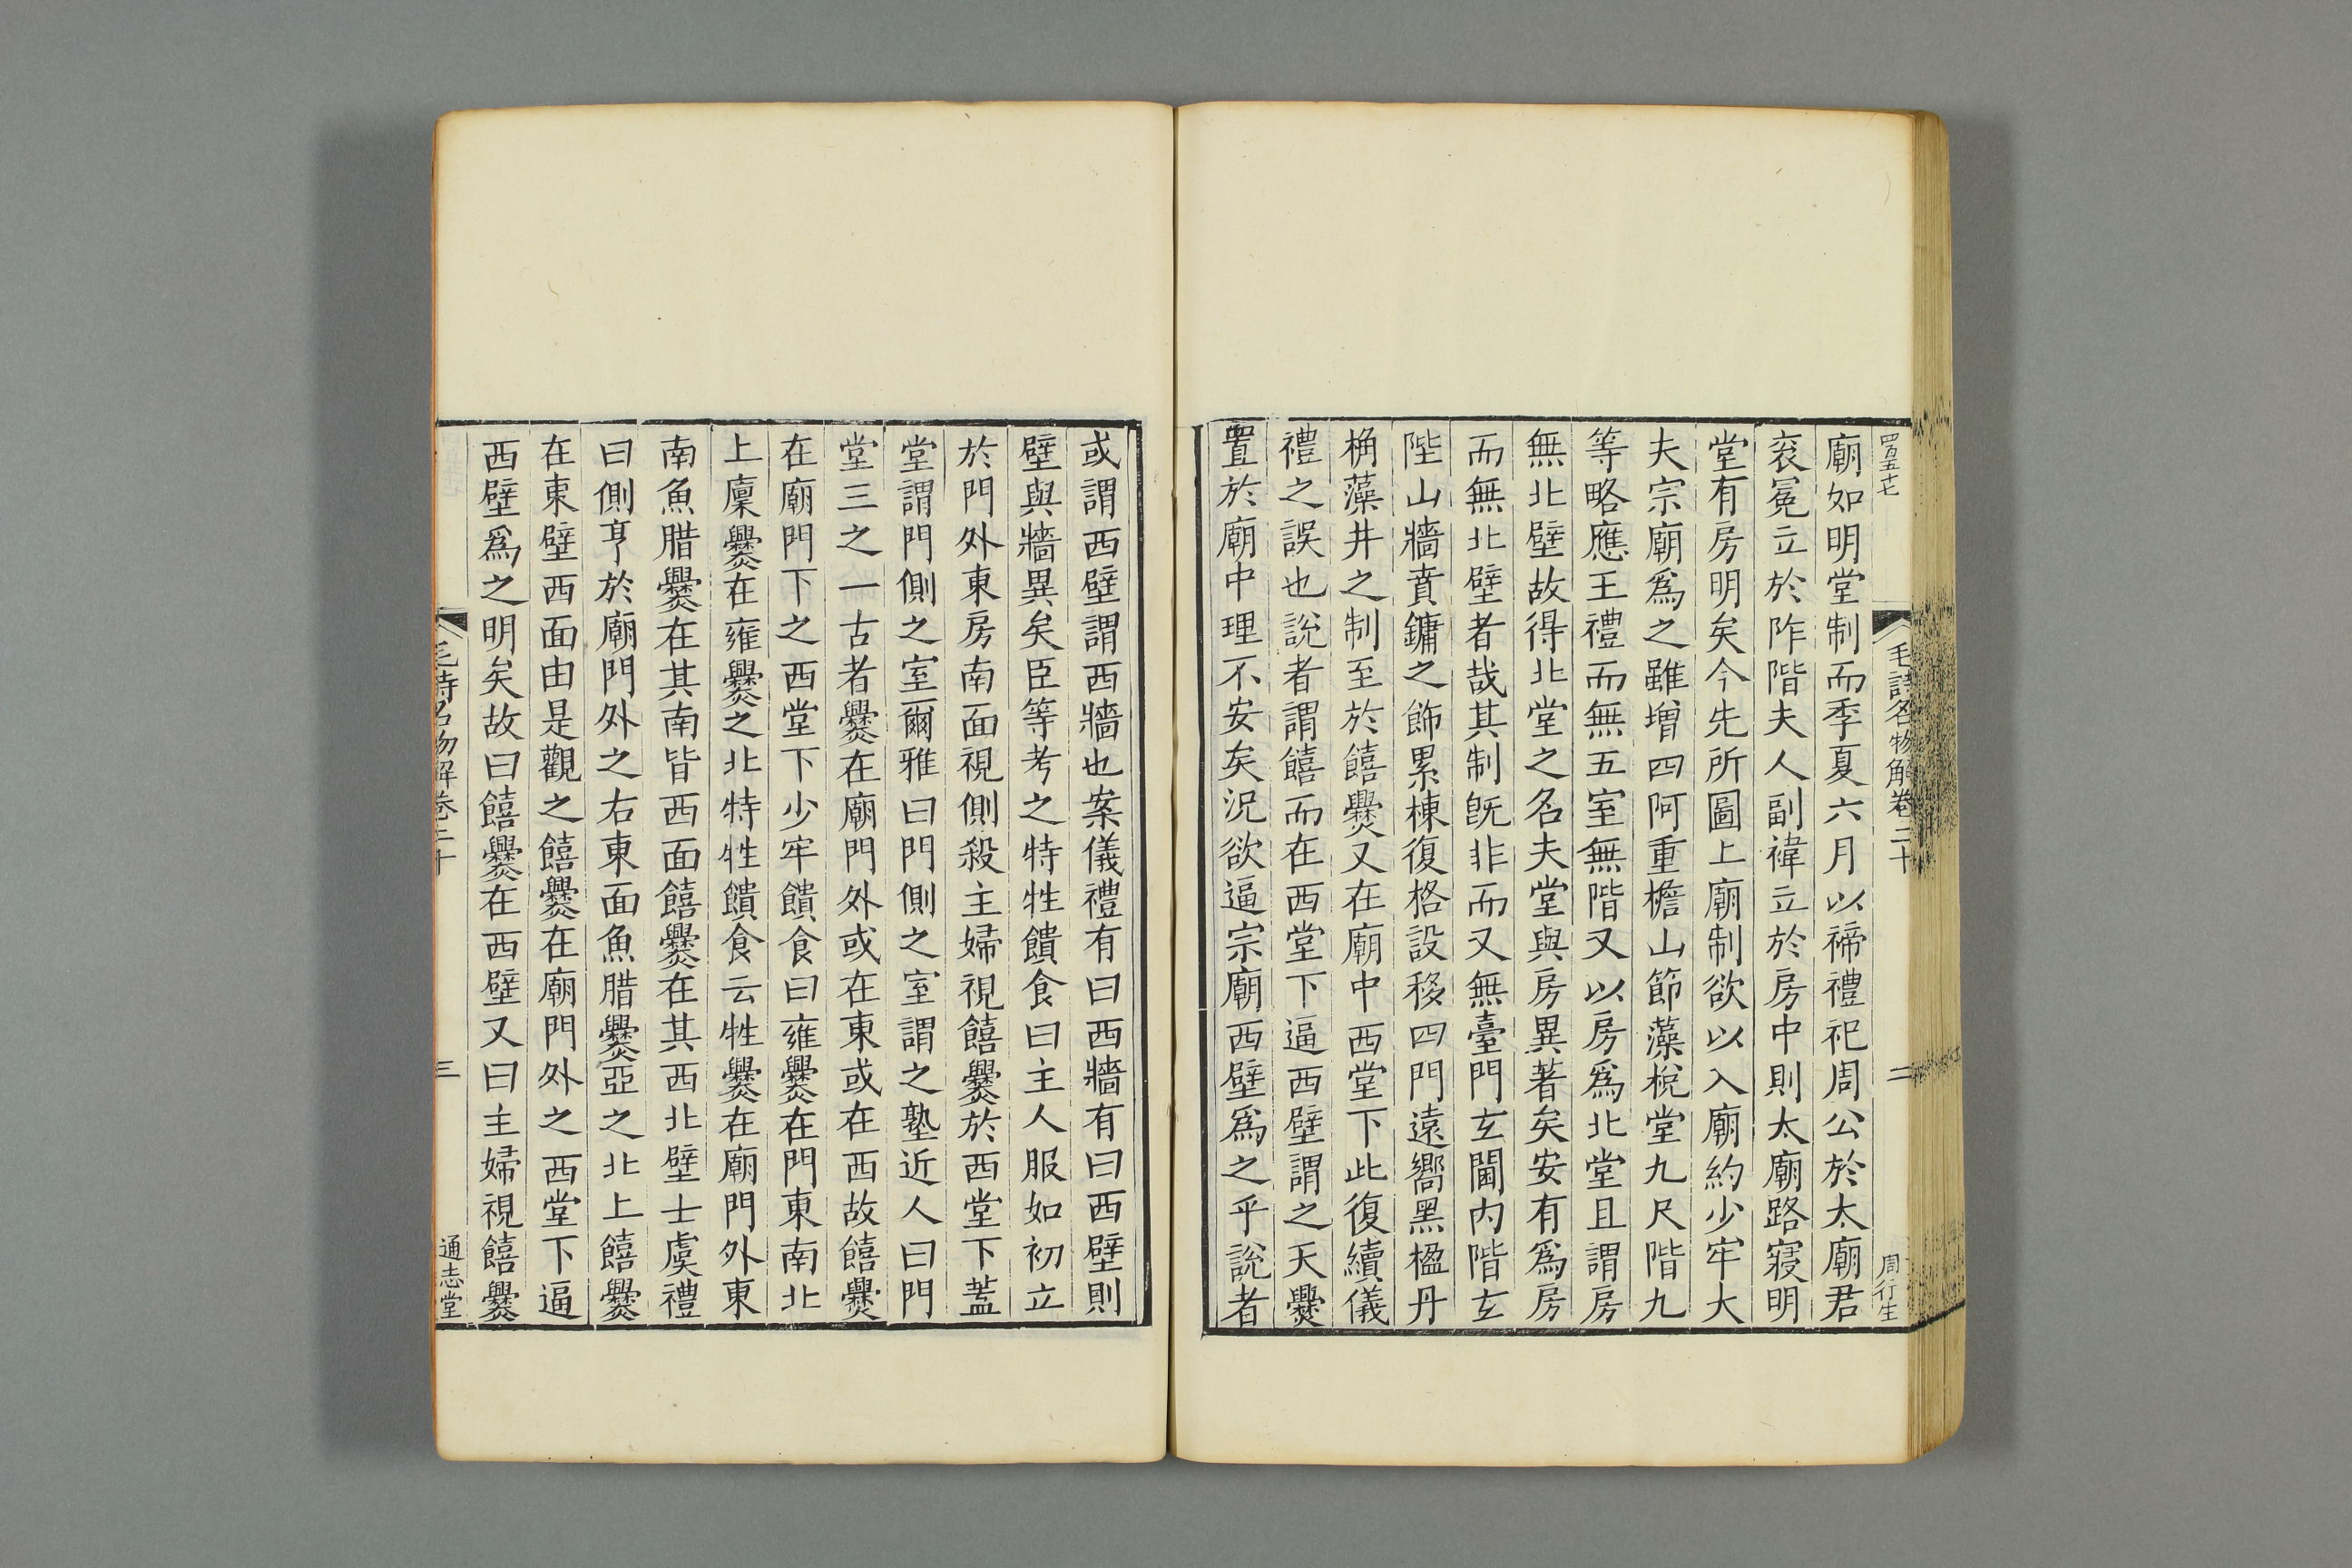 四百五十七
毛詩名物解卷二十
二
周行生
廟如明堂制而季夏六月以禘禮祀周公於太廟君
衮冕立於阼階夫人副褘立於房中則太廟路寢明
堂有房明矣今先所圖上廟制欲以入廟約少牢大
夫宗廟爲之雖增四阿重檐山節藻梲堂九尺階九
等略應王禮而無五室無階又以房爲北堂且謂房
無北壁故得北堂之名夫堂與房異著矣安有爲房
而無北壁者哉其制旣非而又無臺門玄閫内階玄
陛山牆賁鏞之飾累棟復格設移四門遠嚮黑楹丹
桷藻井之制至於饎爨又在廟中西堂下此復續儀
禮之誤也說者謂饎而在西堂下逼西壁謂之天爨
置於廟中理不安矣況欲逼宗廟西壁爲之乎說者
或謂西壁謂西牆也案儀禮有曰西牆有曰西壁則
壁與牆異矣臣等考之特牲饋食曰主人服如初立
於門外東房南面視側殺主婦視饎爨於西堂下蓋
堂謂門側之室爾雅曰門側之室謂之塾近人曰門
堂三之一古者爨在廟門外或在東或在西故饎爨
在廟門下之西堂下少牢饋食曰雍爨在門東南北
上廩爨在雍爨之北特牲饋食云牲爨在廟門外東
南魚腊爨在其南皆西面饎爨在其西北壁士虞禮
曰側亨於廟門外之右東面魚腊爨亞之北上饎爨
在東壁西面由是觀之饎爨在廟門外之西堂下逼
西壁爲之明矣故曰饎爨在西壁又曰主婦視饎爨
毛詩名物解卷二十
三
通志堂